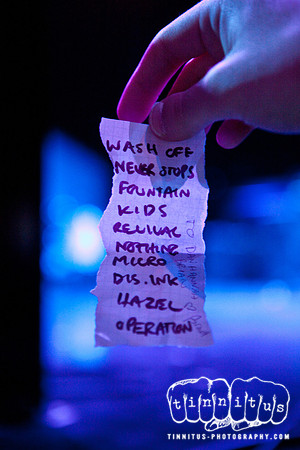 WASH OFF
NEVER STOPS
FOUNTAIN
KIDS
REVIVAL
NOTHING
MICRO
DIS.INK
HAZEL
OPERATION
tinnitus
TINNITUS-PHOTOGRAPHY.COM